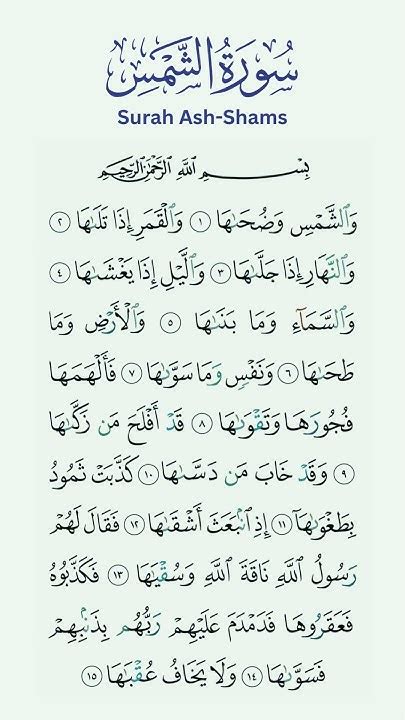 سُورَةُ الشَّمْسِ
Surah Ash-Shams
بِسْمِ ٱللَّهِ ٱلرَّحْمَٰنِ ٱلرَّحِيمِ
وَٱلشَّمْسِ وَضُحَىٰهَا ١ وَٱلْقَمَرِ إِذَا تَلَىٰهَا ٢
وَٱلنَّهَارِ إِذَا جَلَّىٰهَا ٣ وَٱلَّيْلِ إِذَا يَغْشَىٰهَا ٤
وَٱلسَّمَآءِ وَمَا بَنَىٰهَا ٥ وَٱلْأَرْضِ وَمَا
طَحَىٰهَا ٦ وَنَفْسٍ وَمَا سَوَّىٰهَا ٧ فَأَلْهَمَهَا
فُجُورَهَا وَتَقْوَىٰهَا ٨ قَدْ أَفْلَحَ مَن زَكَّىٰهَا
٩ وَقَدْ خَابَ مَن دَسَّىٰهَا ١٠ كَذَّبَتْ ثَمُودُ
بِطَغْوَىٰهَآ ١١ إِذِ ٱنۢبَعَثَ أَشْقَىٰهَا ١٢ فَقَالَ لَهُمْ
رَسُولُ ٱللَّهِ نَاقَةَ ٱللَّهِ وَسُقْيَٰهَا ١٣ فَكَذَّبُوهُ
فَعَقَرُوهَا فَدَمْدَمَ عَلَيْهِمْ رَبُّهُم بِذَنۢبِهِمْ
فَسَوَّىٰهَا ١٤ وَلَا يَخَافُ عُقْبَٰهَا ١٥